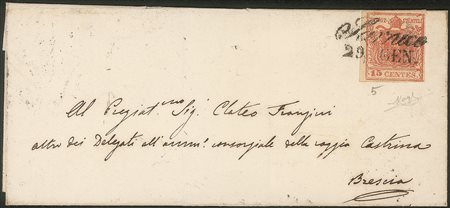 Sarnico
29. GEN.
15 CENTES.
5
Al Pregiat.mo Sig. Clateo Franzini
altro dei Delegati all'amm. consorziale della roggia Castrina
Brescia